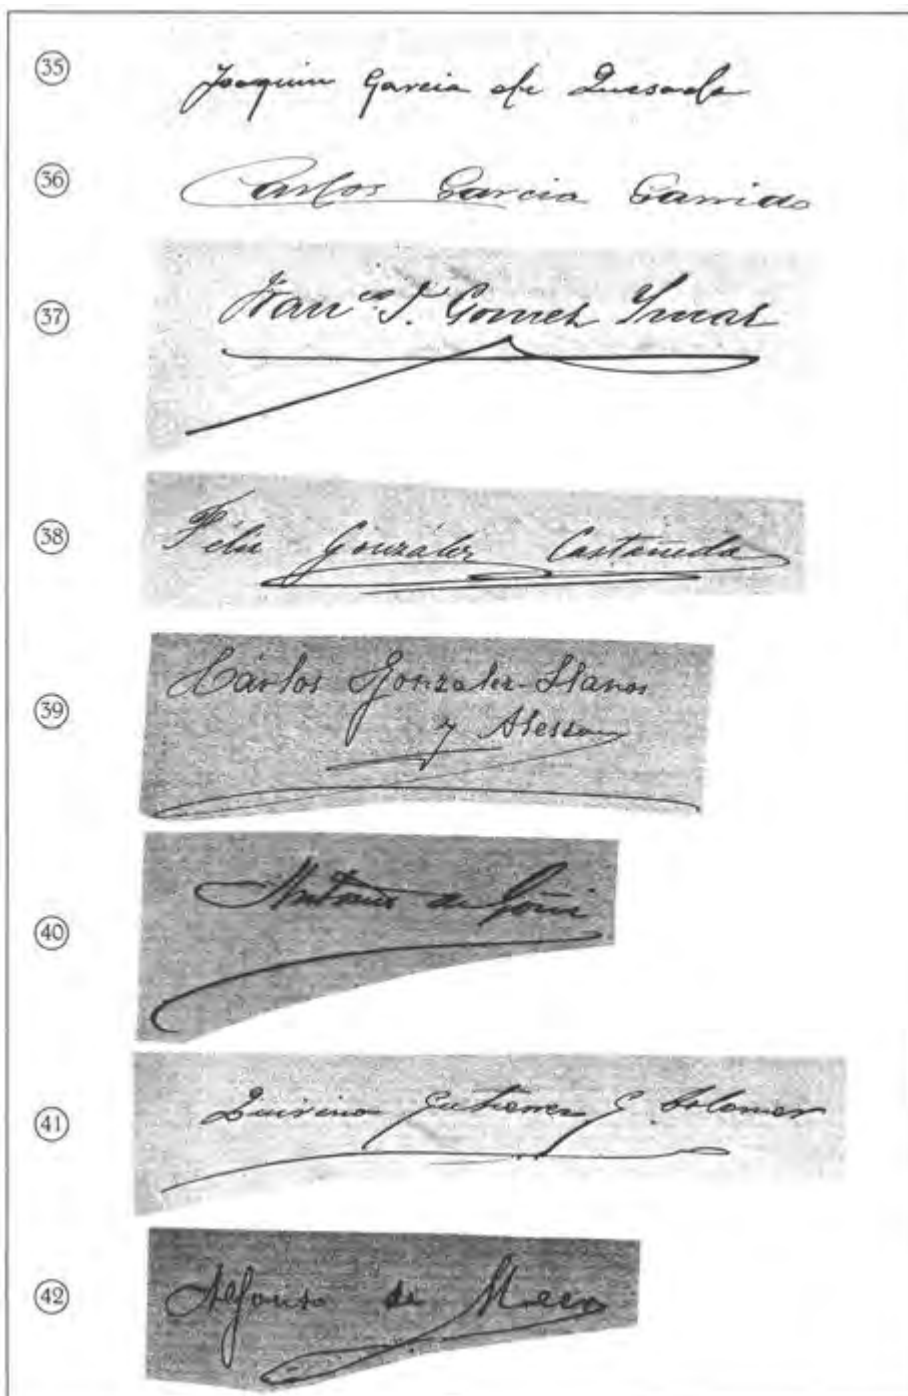 35
Joaquin Garcia de Quesada
36
Carlos Garcia Garrido
37
Fran.co J. Gomez
38
Félix González Castañeda
39
Cárlos Gonzalez-Llanos
y
40
Antonio de Goñi
41
Quirino Gutierrez G.
42
Alfonso de